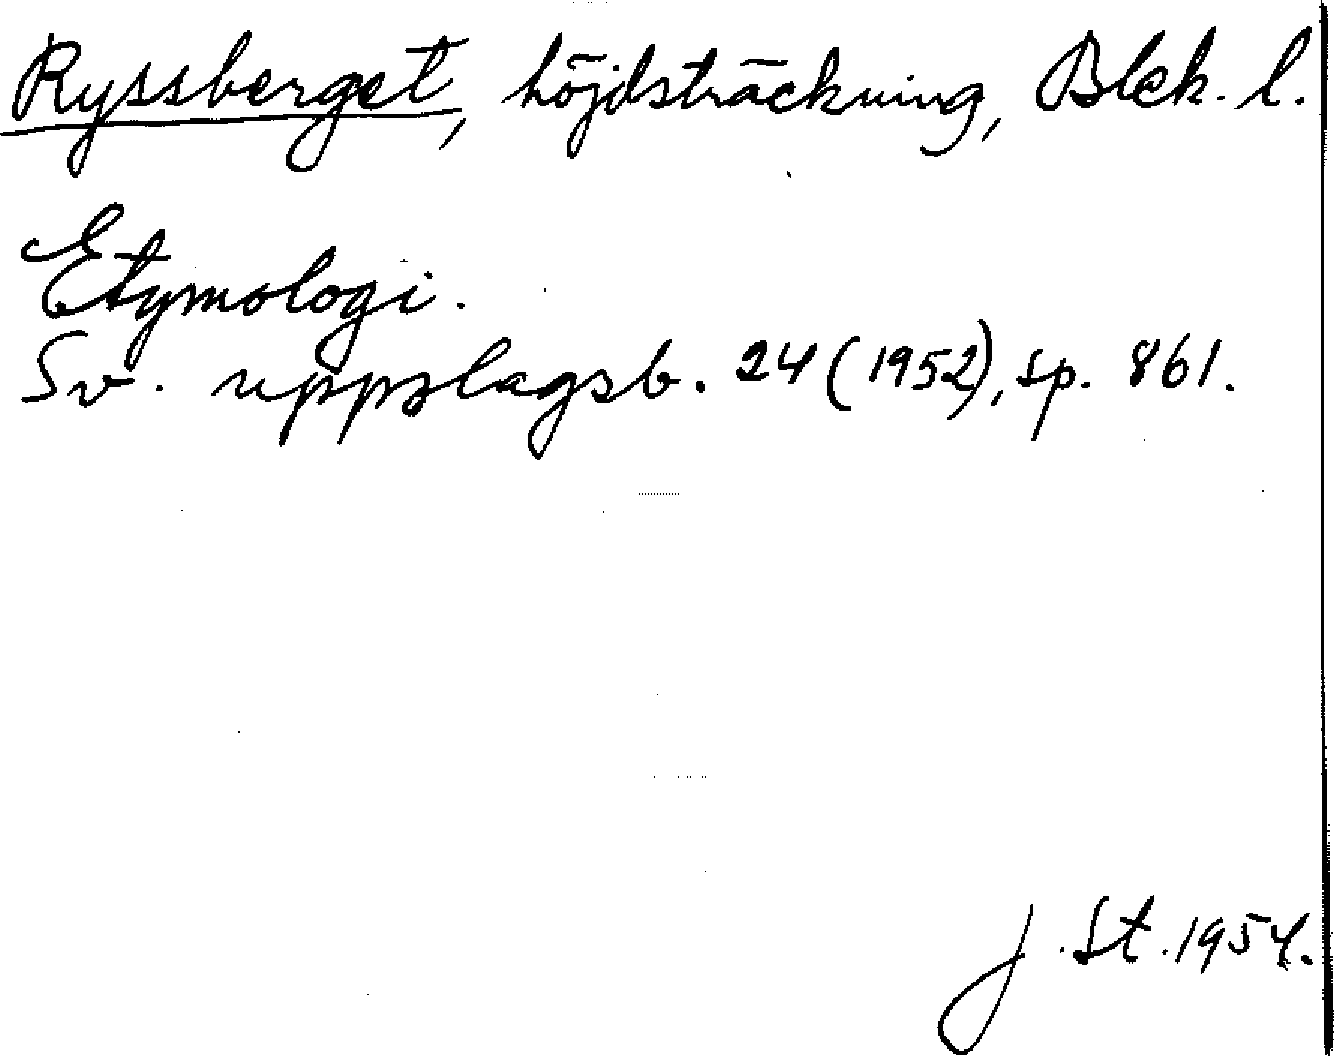 Ryssberget, höjdsträckning, Blek. l.
Etymologi.
Sv. uppslagsb. 24 (1952), sp. 861.
J. St. 1954.